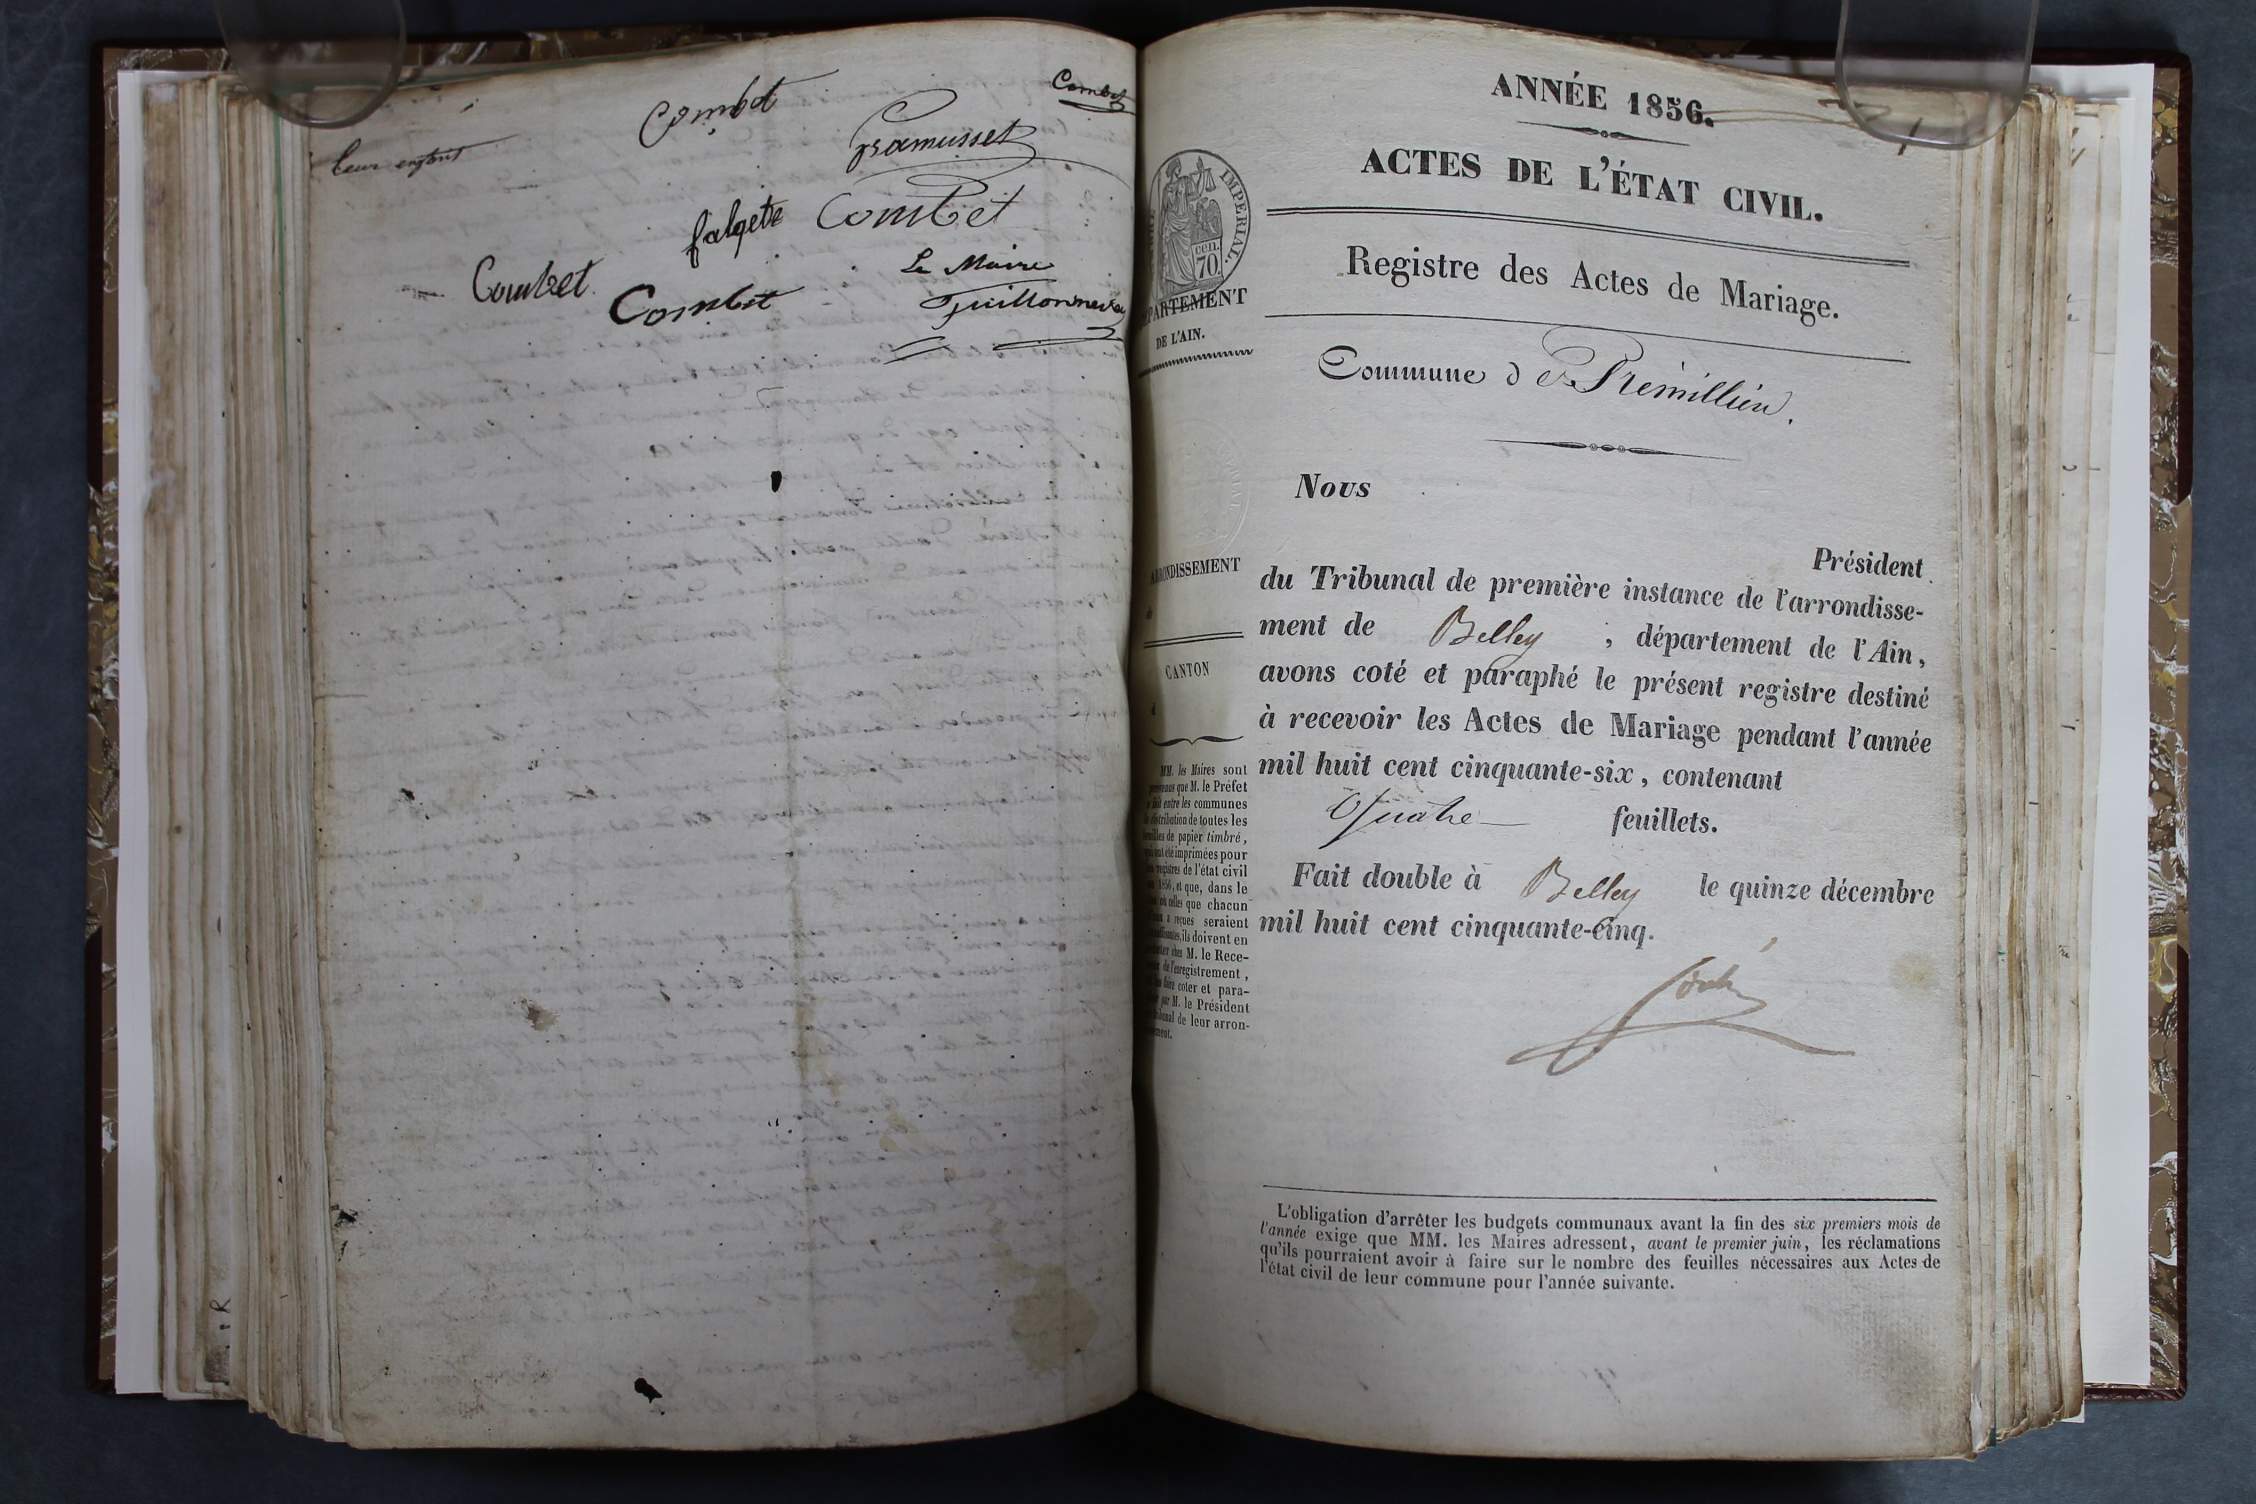 Combet
Combet
leur enfant
Pramusset
falqete Combet
Combet
Combet
Le Maire
Guillonneux
ANNÉE 1856.
1
ACTES DE L'ÉTAT CIVIL.
IMPÉRIAL.
cen.
70
DÉPARTEMENT
DE L'AIN.
Registre des Actes de Mariage.
Commune de Prémillieu.
Nous
Président
du Tribunal de première instance de l'arrondisse-
ment de Belley ; département de l'Ain,
avons coté et paraphé le présent registre destiné
à recevoir les Actes de Mariage pendant l'année
mil huit cent cinquante-six, contenant
Quatre feuillets.
Fait double à Belley le quinze décembre
mil huit cent cinquante-cinq.
ARRONDISSEMENT
CANTON
MM. les Maires sont
que M. le Préfet
fait entre les communes
distribution de toutes les
feuilles de papier timbré,
ont été imprimées pour
registres de l'état civil
1856, et que, dans le
où celles que chacun
a reçues seraient
insuffisantes, ils doivent en
chez M. le Rece-
de l'enregistrement,
faire coter et para-
par M. le Président
Tribunal de leur arron-
L'obligation d'arrêter les budgets communaux avant la fin des six premiers mois de
l'année exige que MM. les Maires adressent, avant le premier juin, les réclamations
qu'ils pourraient avoir à faire sur le nombre des feuilles nécessaires aux Actes de
l'état civil de leur commune pour l'année suivante.